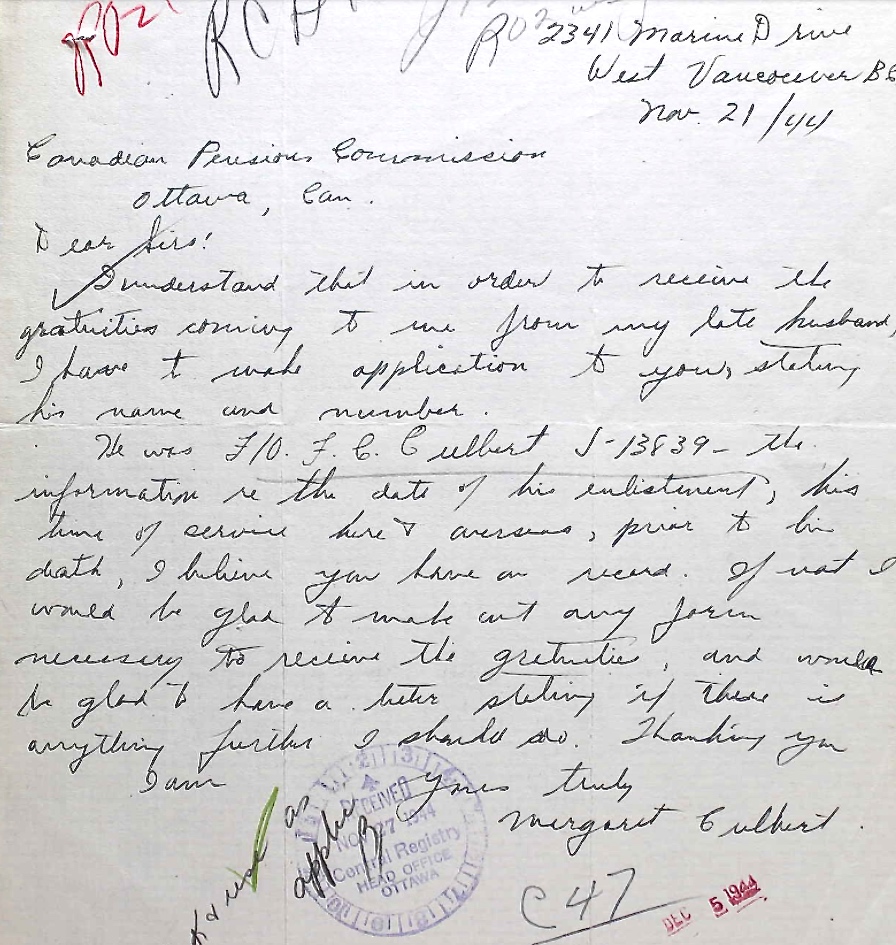 RCAF
2341 Marine Drive
West Vancouver BC
Nov. 21/44
Canadian Pensions Commission
Ottawa, Can.
Dear Sirs!
I understand that in order to receive the
gratuities coming to me from my late husband,
I have to make application to you, stating
his name and number.
He was F/O. F. C. Culbert J-13839- the
information re the date of his enlistment, his
time of service here & overseas, prior to his
death, I believe you have on record. If not I
would be glad to make out any form
necessary to receive the gratuities, and would
be glad to have a letter stating if there is
anything further I should do. Thanking you
I am
Yours truly
Margaret Culbert.
RECEIVED
NOV 27 1944
Central Registry
HEAD OFFICE
OTTAWA
as
C47
DEC 5 1944